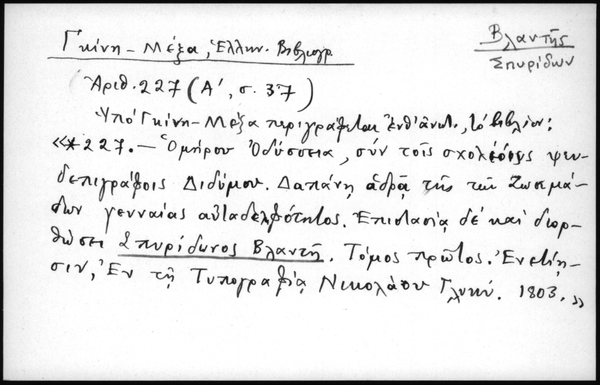 Γκίνη - Μέξα, Ἑλλην. Βιβλιογρ
Βλαντῆς
Σπυρίδων
Ἀριθ. 227 (Α', σ. 37)
Ὑπό Γκίνη - Μέξα περιγράφεται ἐνθ' ἀνωτ., τό βιβλίον:
«*227. — Ὁμήρου Ὀδύσσεια, σύν τοῖς σχολίοις ψευ-
δεπιγράφοις Διδύμου. Δαπάνῃ ἁδρᾷ τῆς τῶν Ζωσιμά-
δων γενναίας αὐταδελφότητος. Ἐπιστασίᾳ δέ καί διορ-
θώσει Σπυρίδωνος Βλαντῆ. Τόμος πρῶτος. Ἐνετίῃ-
σιν, Ἐν τῇ Τυπογραφίᾳ Νικολάου Γλυκύ. 1803.»